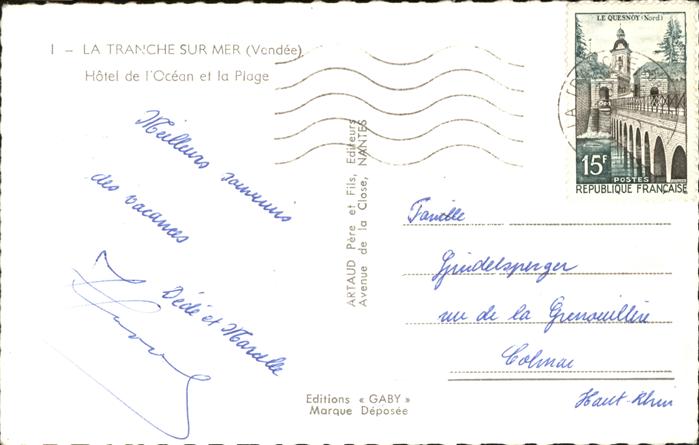 1 - LA TRANCHE SUR MER (Vendée)
Hôtel de l'Océan et la Plage
Meilleurs souvenirs
des vacances
Dédé et Marcelle
ARTAUD Père et Fils, Editeurs
Avenue de la Close, NANTES
Editions « GABY »
Marque Déposée
LE QUESNOY (Nord)
15F
POSTES
REPUBLIQUE FRANÇAISE
LA TR
Famille
Grindelsperger
rue de la Grenouillère
Colmar
Haut-Rhin